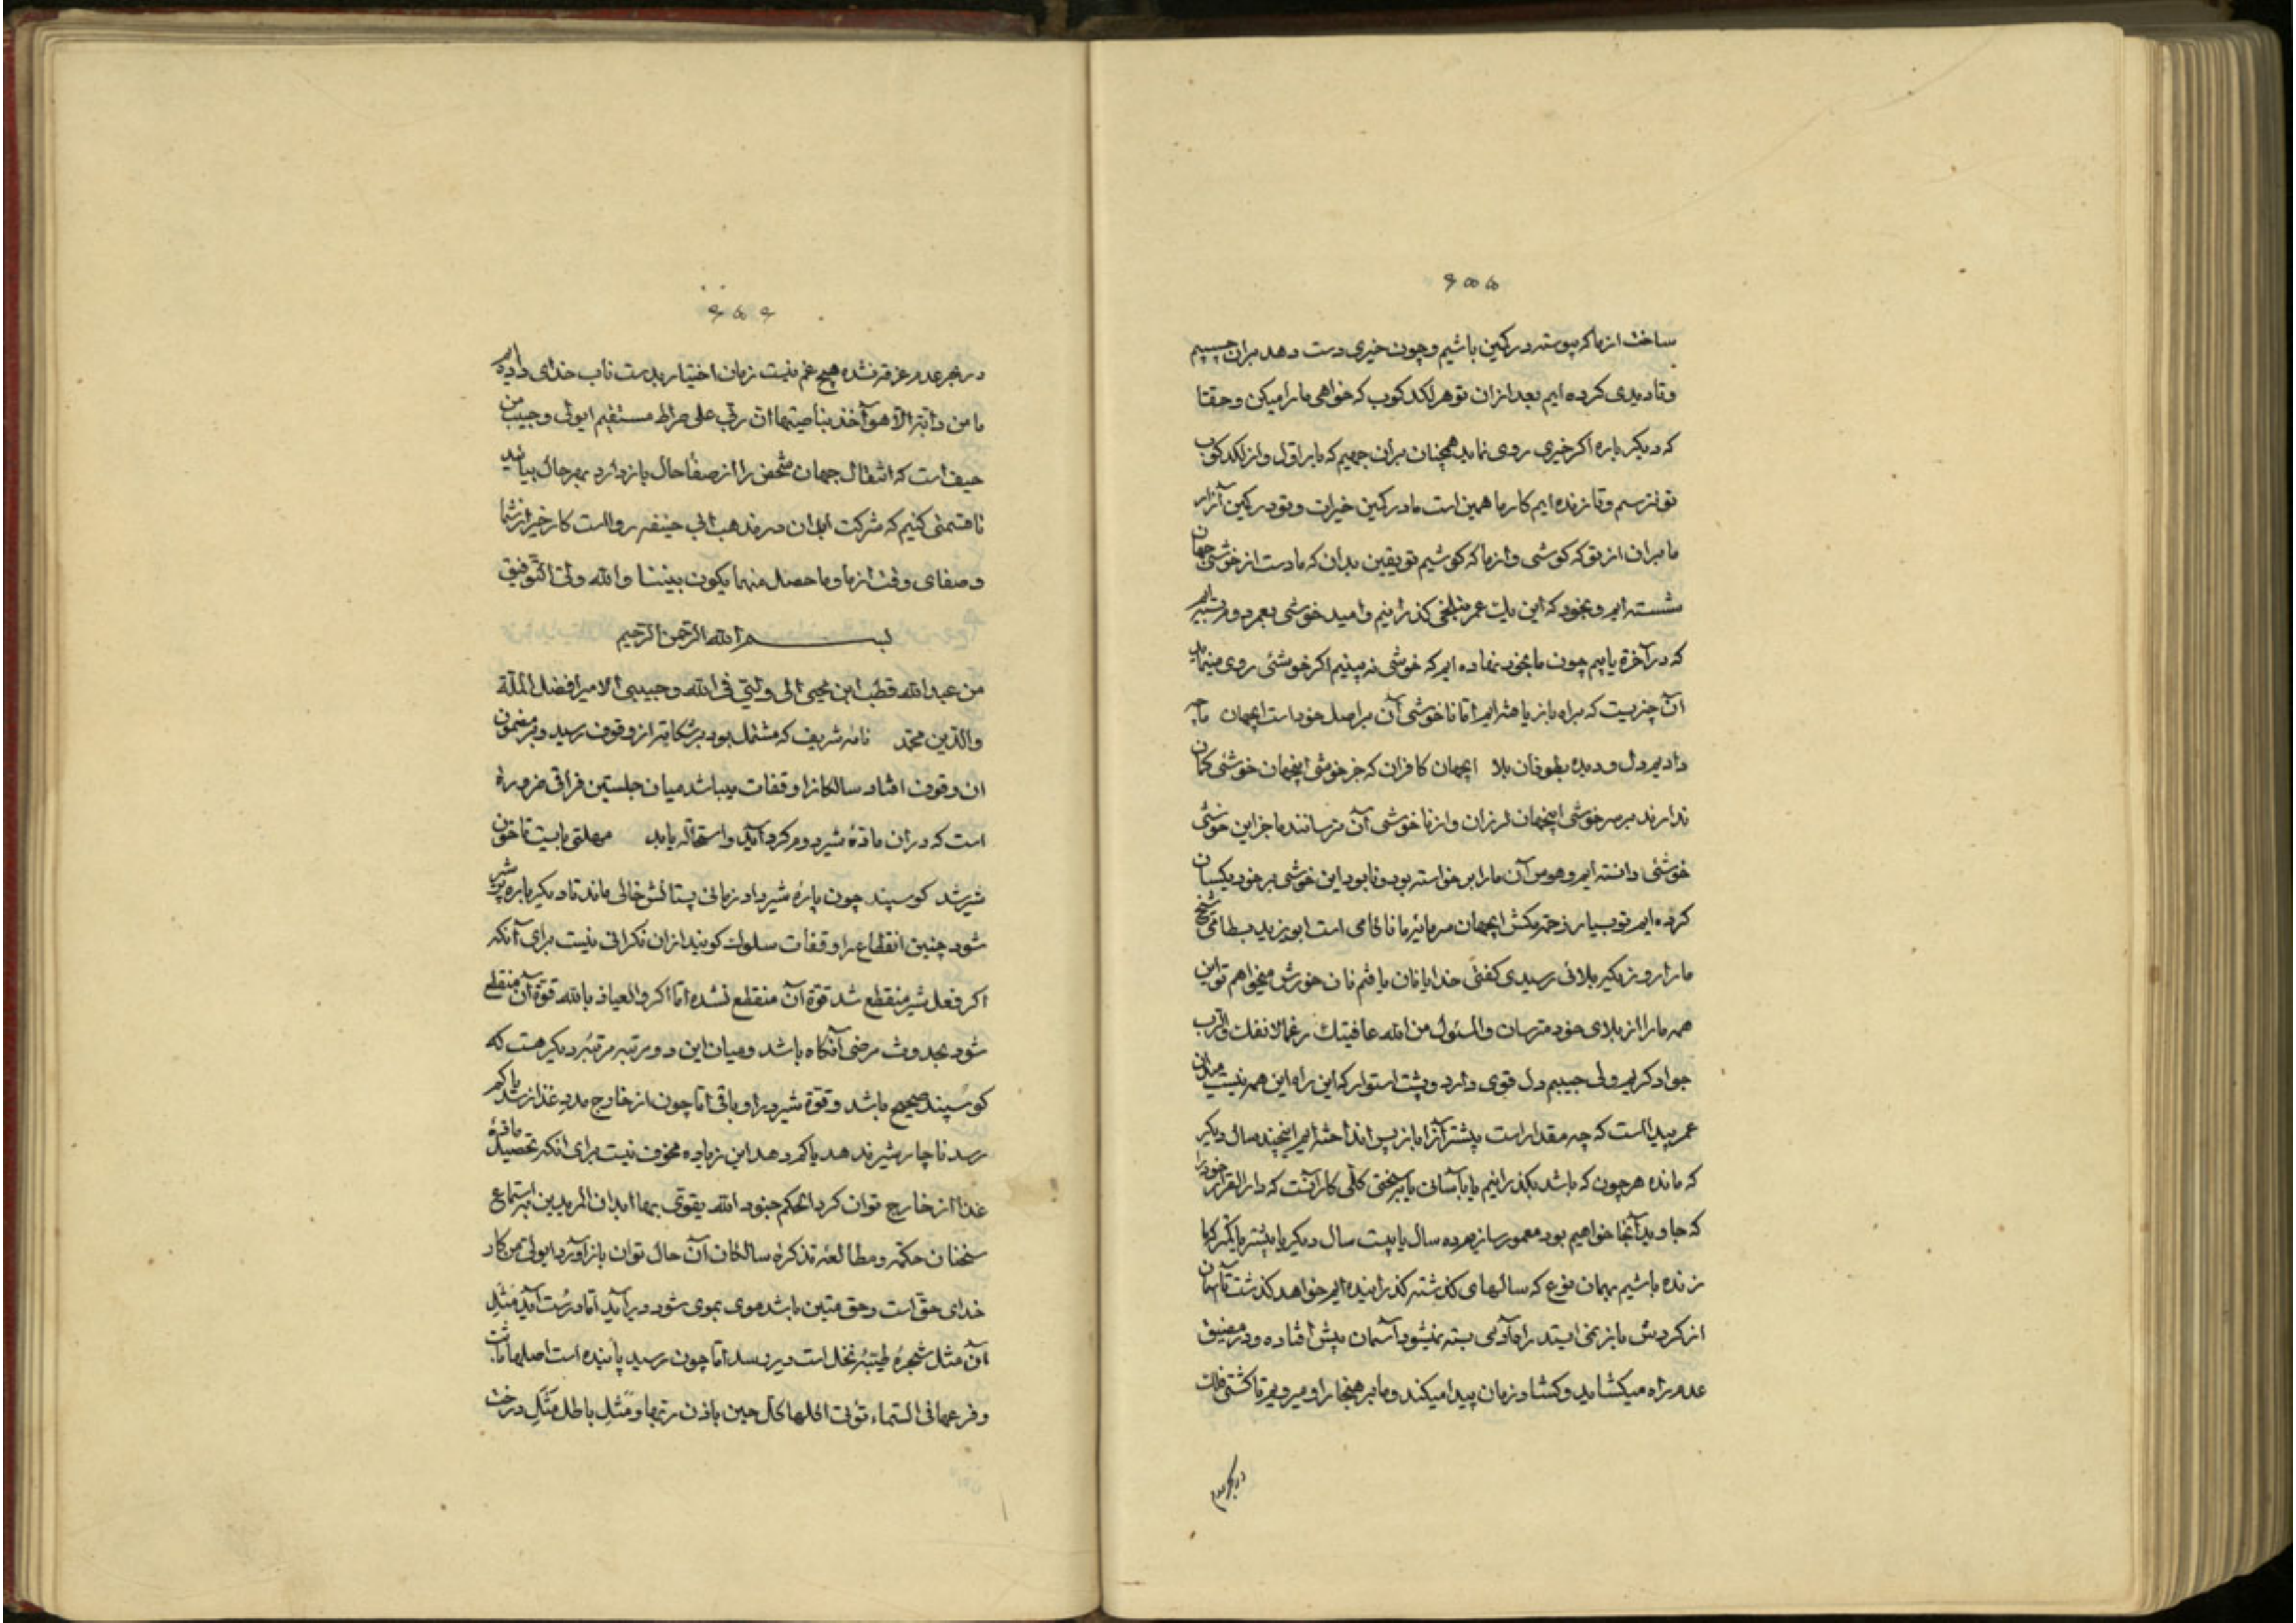 ساخت از ما که پیوسته در کمین باشیم و چون خیری دست دهد بران چسبیم
و تا دیدی کرده ایم بعد از ان تو هر لکد کوب که خواهی ما را میکن و حقا
که دیکر باره اکر خیری روی نماید همچنان بران جهیم که بار اول و از لکد کوب
تو نترسیم و تا زنده ایم کار ما همین است ما در کمین خیرات و تو در کمین آزار
ما بران از تو که کوشی و از ما که کوشیم تو یقین بدان که ما دست از خوشی جهان
شسته ایم و بخود که این یک عمر بتلخی کذرانیم و امید خوشی بعمر دوم بسته ایم
که در آخرة یابیم چون ما بخود نهاده ایم که خوشی نه بینیم اکر خوشئی روی مینماید
آن چیزیست که براه باز یافته ایم اما ناخوشی آن بر اصل خود است ایجهان ما چه
دادیم دل و دیده بطوفان بلا ایجهان کافران که جز خوشی اینجهان خوشئی کمان
ندارند بر سر خوشی اینجهان لرزان و از ناخوشی آن ترسانند ما جز این خوشی
خوشئی دانسته ایم و هوس آن ما را بر خواسته بود و نابود این خوشی بر خود یکسان
کرده ایم تو بسیار زحمت مکش ایجهان سرمایه ما ناکامی است ابو یزید بسطامی شیخ
ما را روزیکه بلائی رسیدی کفتی خدایا نان یافتم نان خورش میخواهم تو این
همه ما را از بلای خود مترسان والمسئول من الله عافیتك رغما لانفك والرب
جواد کریم ولی حبیبم دل قوی دارد و پشت استوار که این راه این همه نیست میدان
عمر پیداست که چه مقدار است پیشتر آنرا باز پس انداخته ایم اینچند سال دیکر
که مانده هر چون که باشد بکذرانیم یا بآسانی یا بسختی کلی کار آنست که دار القرار خود را
که جاوید آنجا خواهیم بود معمور سازیم ده سال یا بیست سال دیکر یا بیشتر یا کمتر که ما
زنده باشیم بهمان نوع که سالهای کذشته کذرانیده ایم خواهد کذشت تا آسمان
از کردش باز نمی ایستد راه آدمی بسته نمیشود آسمان پیش افتاده و در مضیق
عدم راه میکشاید و کشاد زمان پیدا میکند و ما بر هنجار او میرویم تا کشتی فلک
در بحر عدم
در بحر عدم غرقه نشده هیچ غم نیست زمان اختیار بدست نایب خدای داده اند
ما من دابة الا هو آخذ بناصیتها ان ربی علی صراط مستقیم ای ولی و حبیب من
حیف است که انتقال جهان شخص را از صفا حال باز دارد بهر حال بیائید
تا قسمتی کنیم که شرکت ابدان در مذهب ابی حنیفه رواست کار خیر از شما
و صفای وقت از ما و ما حصل منهما یکون بیننا والله ولی التوفیق
بسم الله الرحمن الرحیم
من عبد الله قطب ابن محیی الی ولیی فی الله و حبیبی الامیر افضل الملة
والدین محمد نامه شریف که مشتمل بود بر شکایت از وقوف رسید و بر مضمون
ان وقوف افتاد سالکانرا وقفات میباشد میان جلستین فراقی ضرورة
است که در ان مادۀ شیر در و کرد آید و استحاله یابد مهلتی بایست تا خون
شیر شد کوسپند چون پارۀ شیر داد زمانی پستانش خالی ماند تا دیکر باره پر شیر
شود چنین انقطاع را وقفات سلوك کویند از ان نکرانی نیست برای آنکه
اکر فعل شیر منقطع شد قوة آن منقطع نشده اما اکر والعیاذ بالله قوة آن منقطع
شود بحدوث مرضی آنکاه باشد و میان این دو مرتبه مرتبۀ دیکر هست که
کوسپند صحیح باشد و قوة شیر در او باقی اما چون از خارج مدد غذا نرسد یا کم
رسد ناچار شیر ندهد یا کم دهد این زیاده مخوف نیست برای انکه تحصیل مادۀ
غذا از خارج توان کرد الحکم جنود الله یقوی بها ابدان المریدین باستماع
سخنان حکمة و مطالعه تذکرۀ سالکان آن حال توان باز آورد ای ولی من کار
خدای حق است و حق متین باشد موی بموی شود دیر آید اما درست آید مثل
آن مثل شجرۀ طیبۀ نخل است دیر رسد اما چون رسید پاینده است اصلها ثابت
و فرعها فی السماء تؤتی اکلها کل حین باذن ربها و مثل باطل مثل درخت